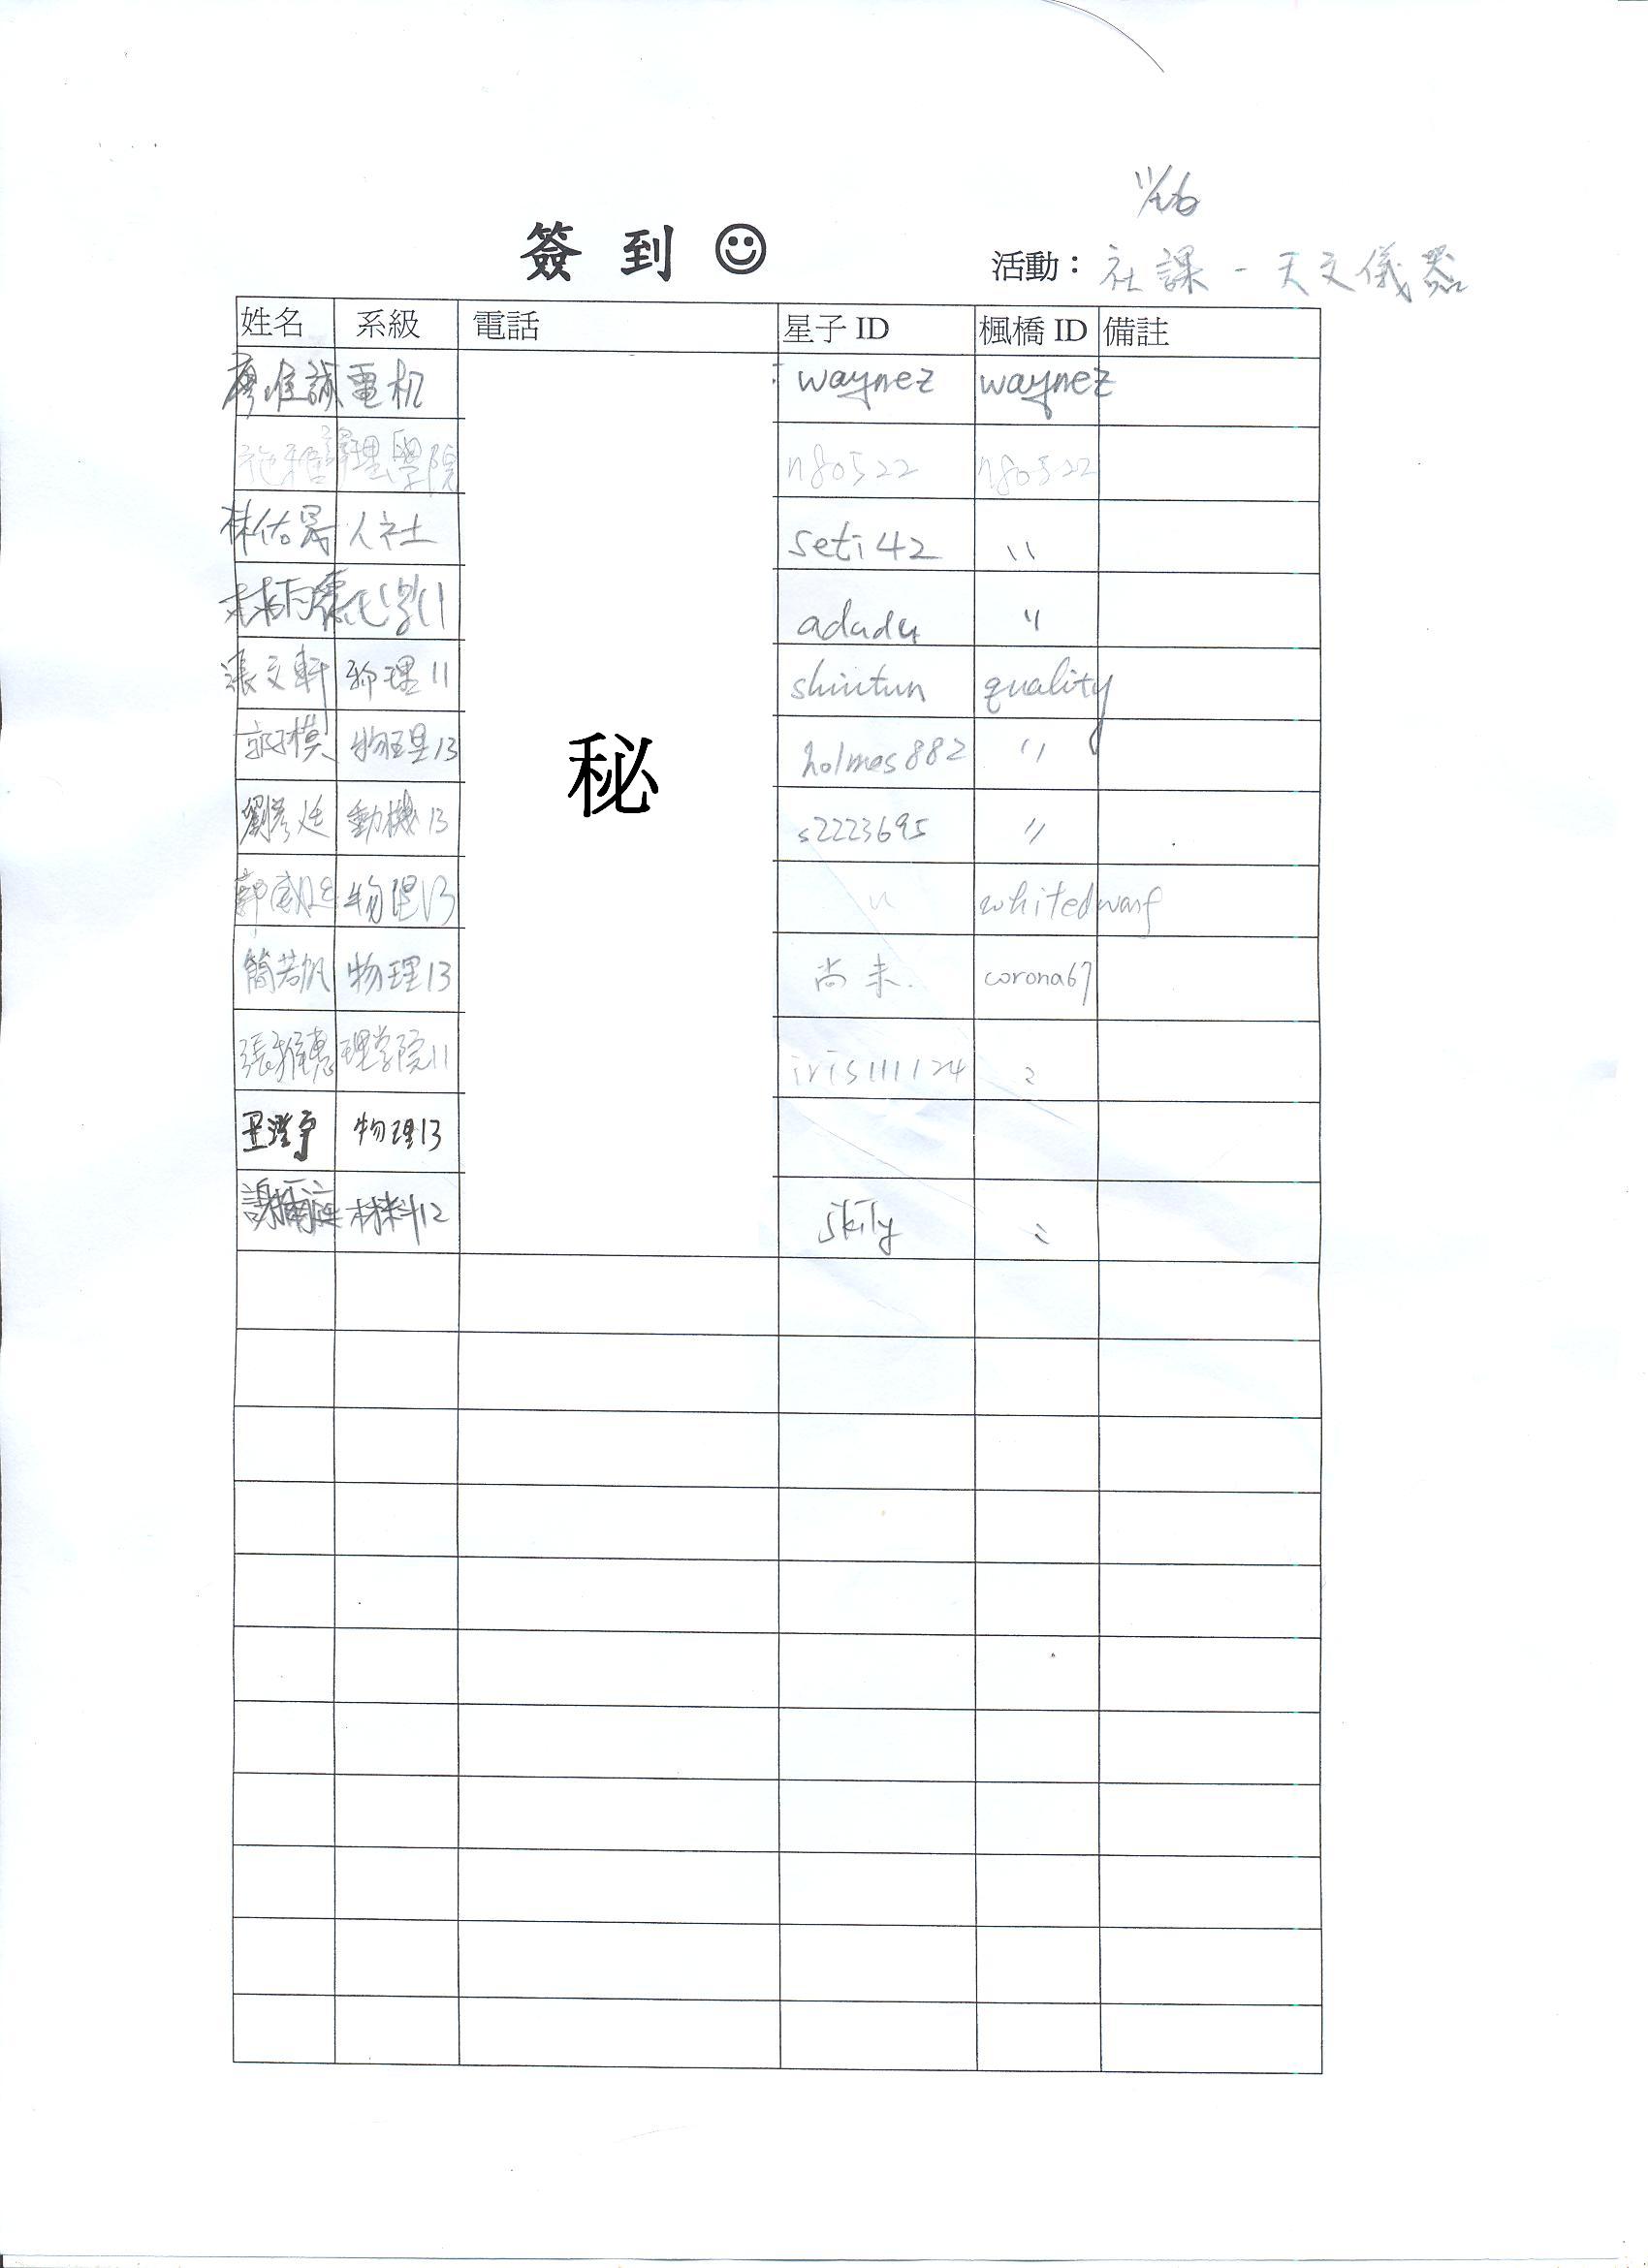 簽 到 ☺
活動：社課 - 天文儀器
姓名 系級 電話 星子 ID 楓橋 ID 備註
廖唯誠 電机 waynez waynez
施雅 理學院 n80522 n80522
林佑 人社 seti42 〃
化學11 adudu 〃
張文軒 物理11 shintun quality
郭模 物理13 holmes882 〃
秘
劉彥廷 動機13 s2223695 〃
郭威 物理13 〃 whitedwarf
簡若帆 物理13 尚未. corona67
張雅惠 理学院11 iris111124 〃
物理13
謝 材料12 skily 〃